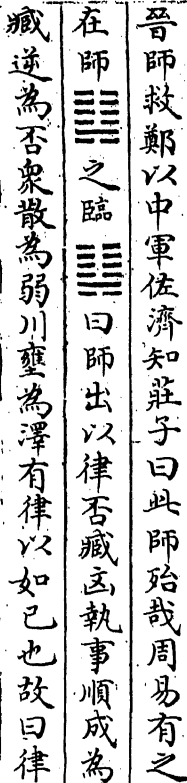 晉師救鄭以中軍佐濟知莊子曰此師殆哉周易有之
在師䷆之臨䷒曰師出以律否臧凶執事順成為
臧逆為否衆散為弱川壅為澤有律以如已也故曰律